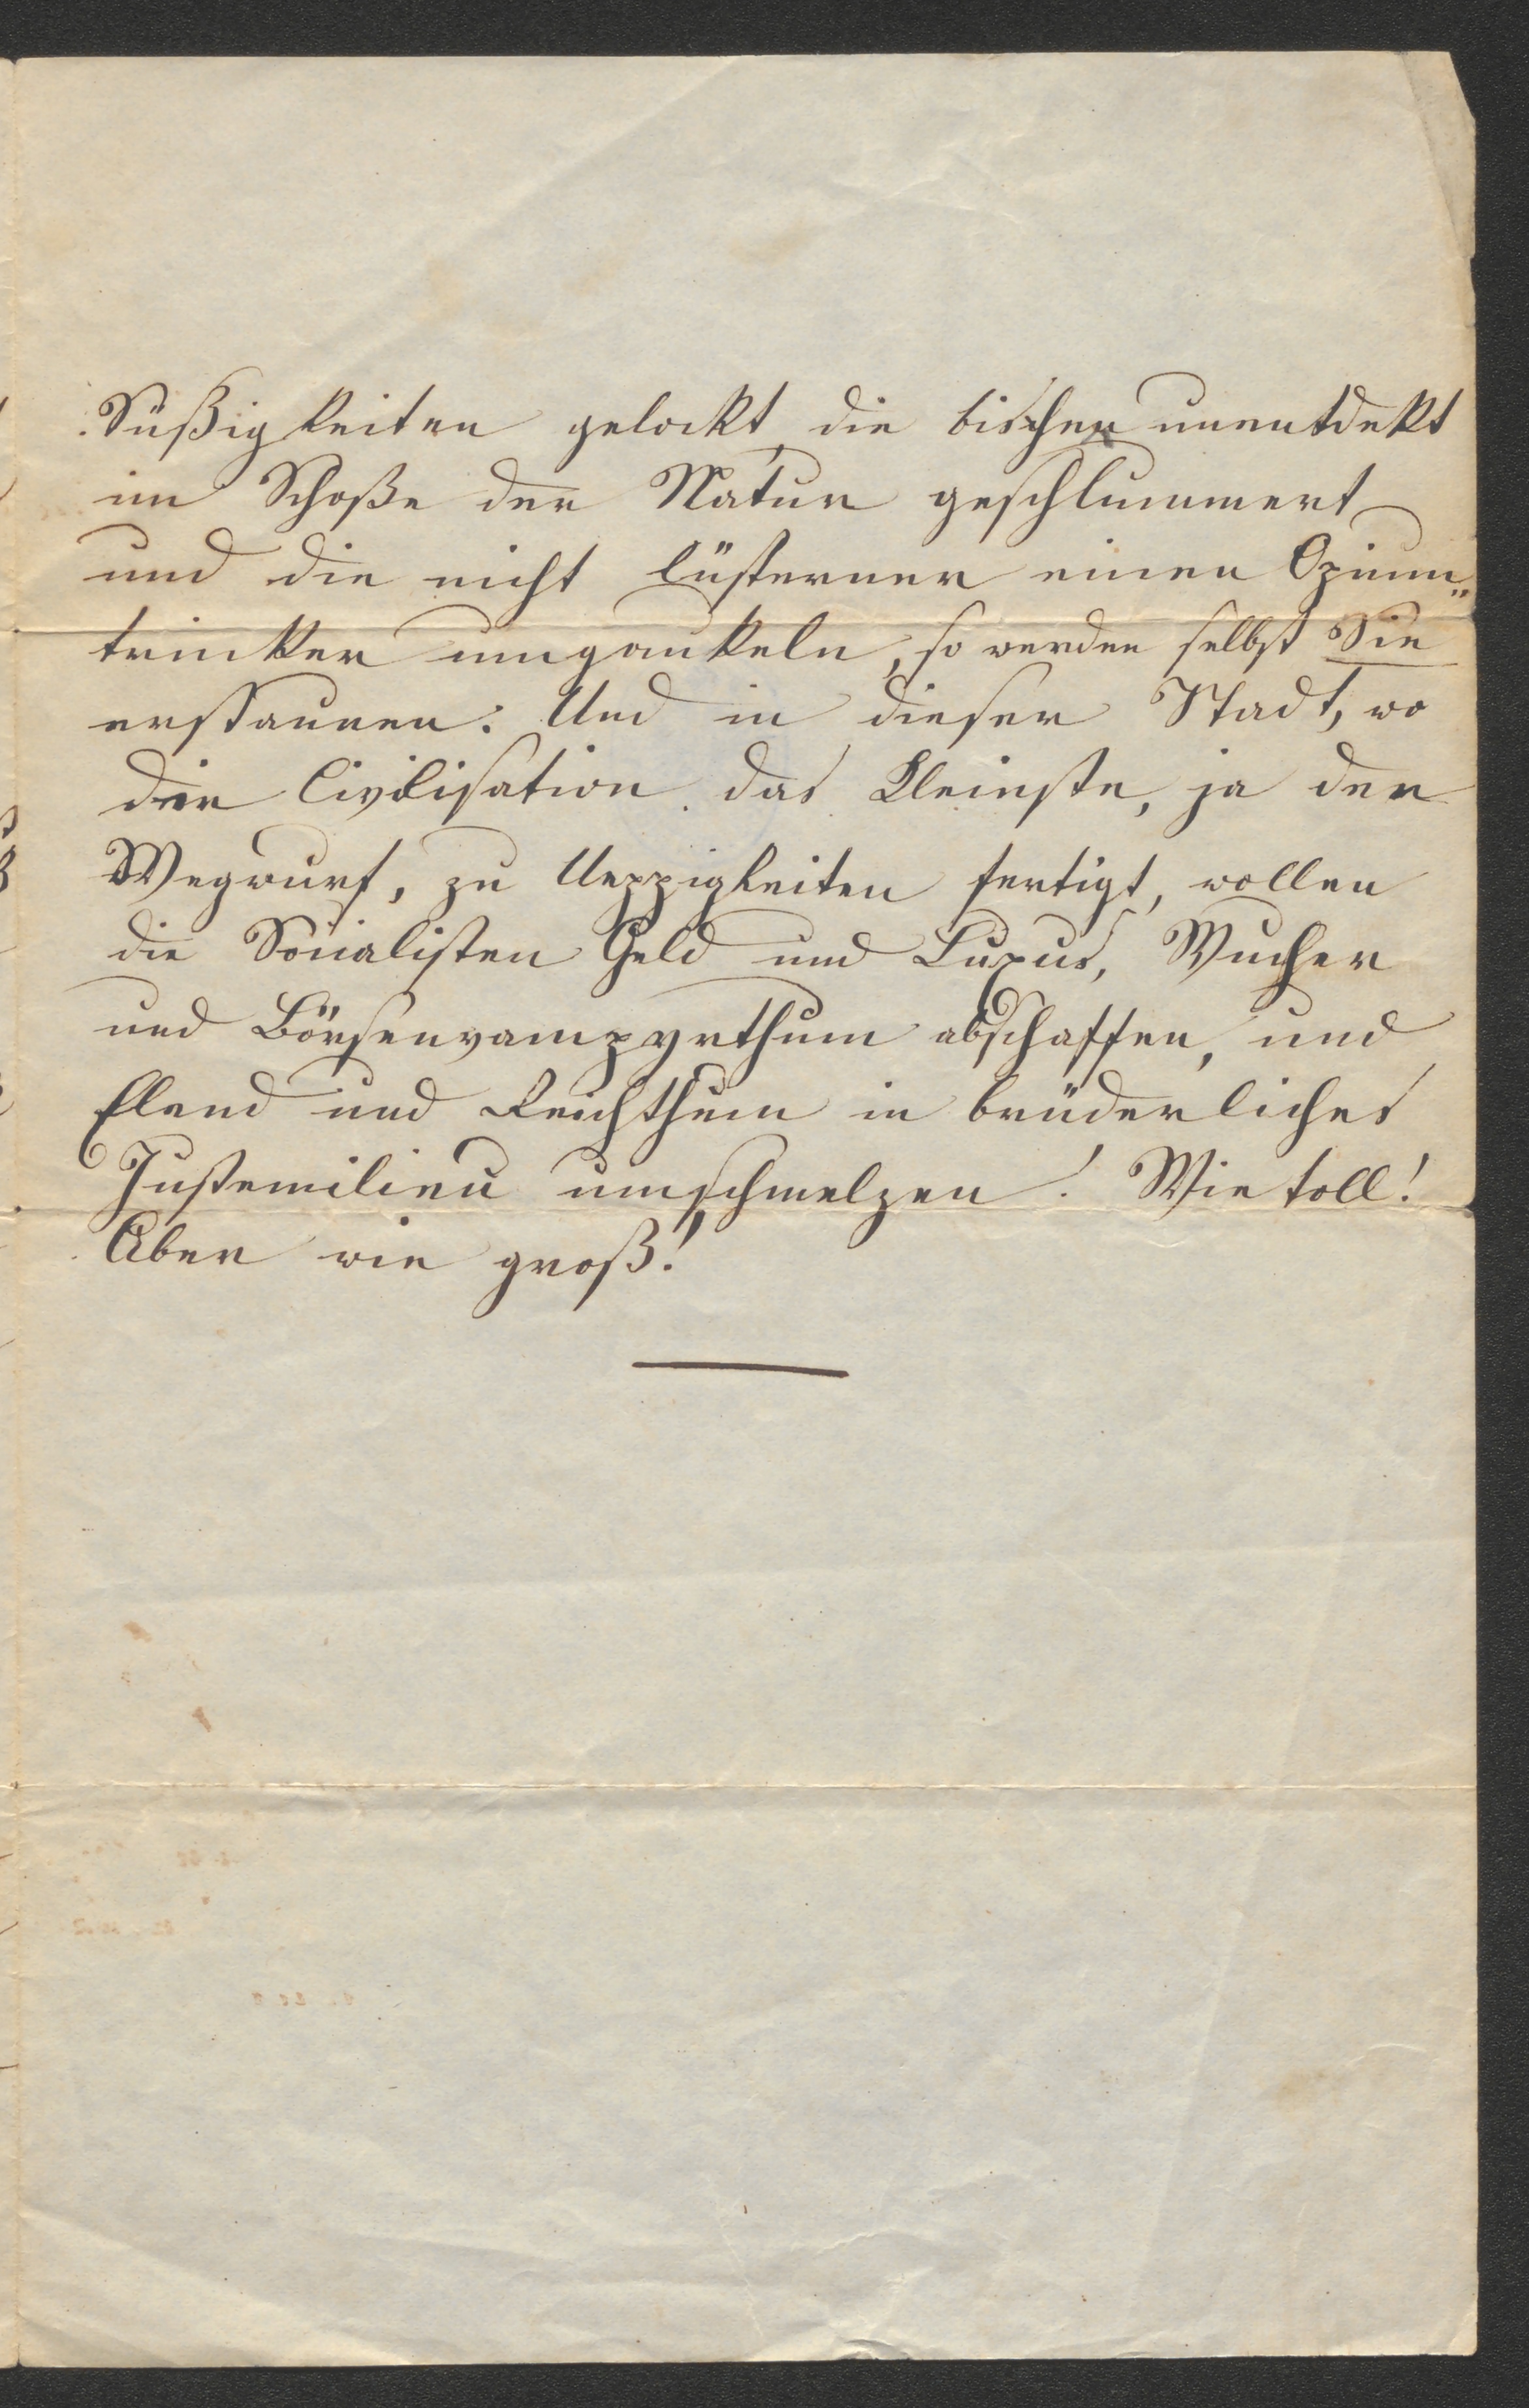 Süßigkeiten gelockt, die bisher unentdekt
im Schoße der Natur geschlummert
und die nicht lüsterner einen Opium„
trinker umgaukeln, so werden selbst Sie
erstaunen. Und in dieser Stadt, wo
die Civilisation das Kleinste, ja den
Wegwurf, zu Ueppigkeiten fertigt, wollen
die Socialisten Geld und Luxus, Wucher
und Börsenvampyrthum abschaffen, und
Elend und Reichthum in brüderliches
Justemilieu umschmelzen! Wie toll!
Aber wie groß!